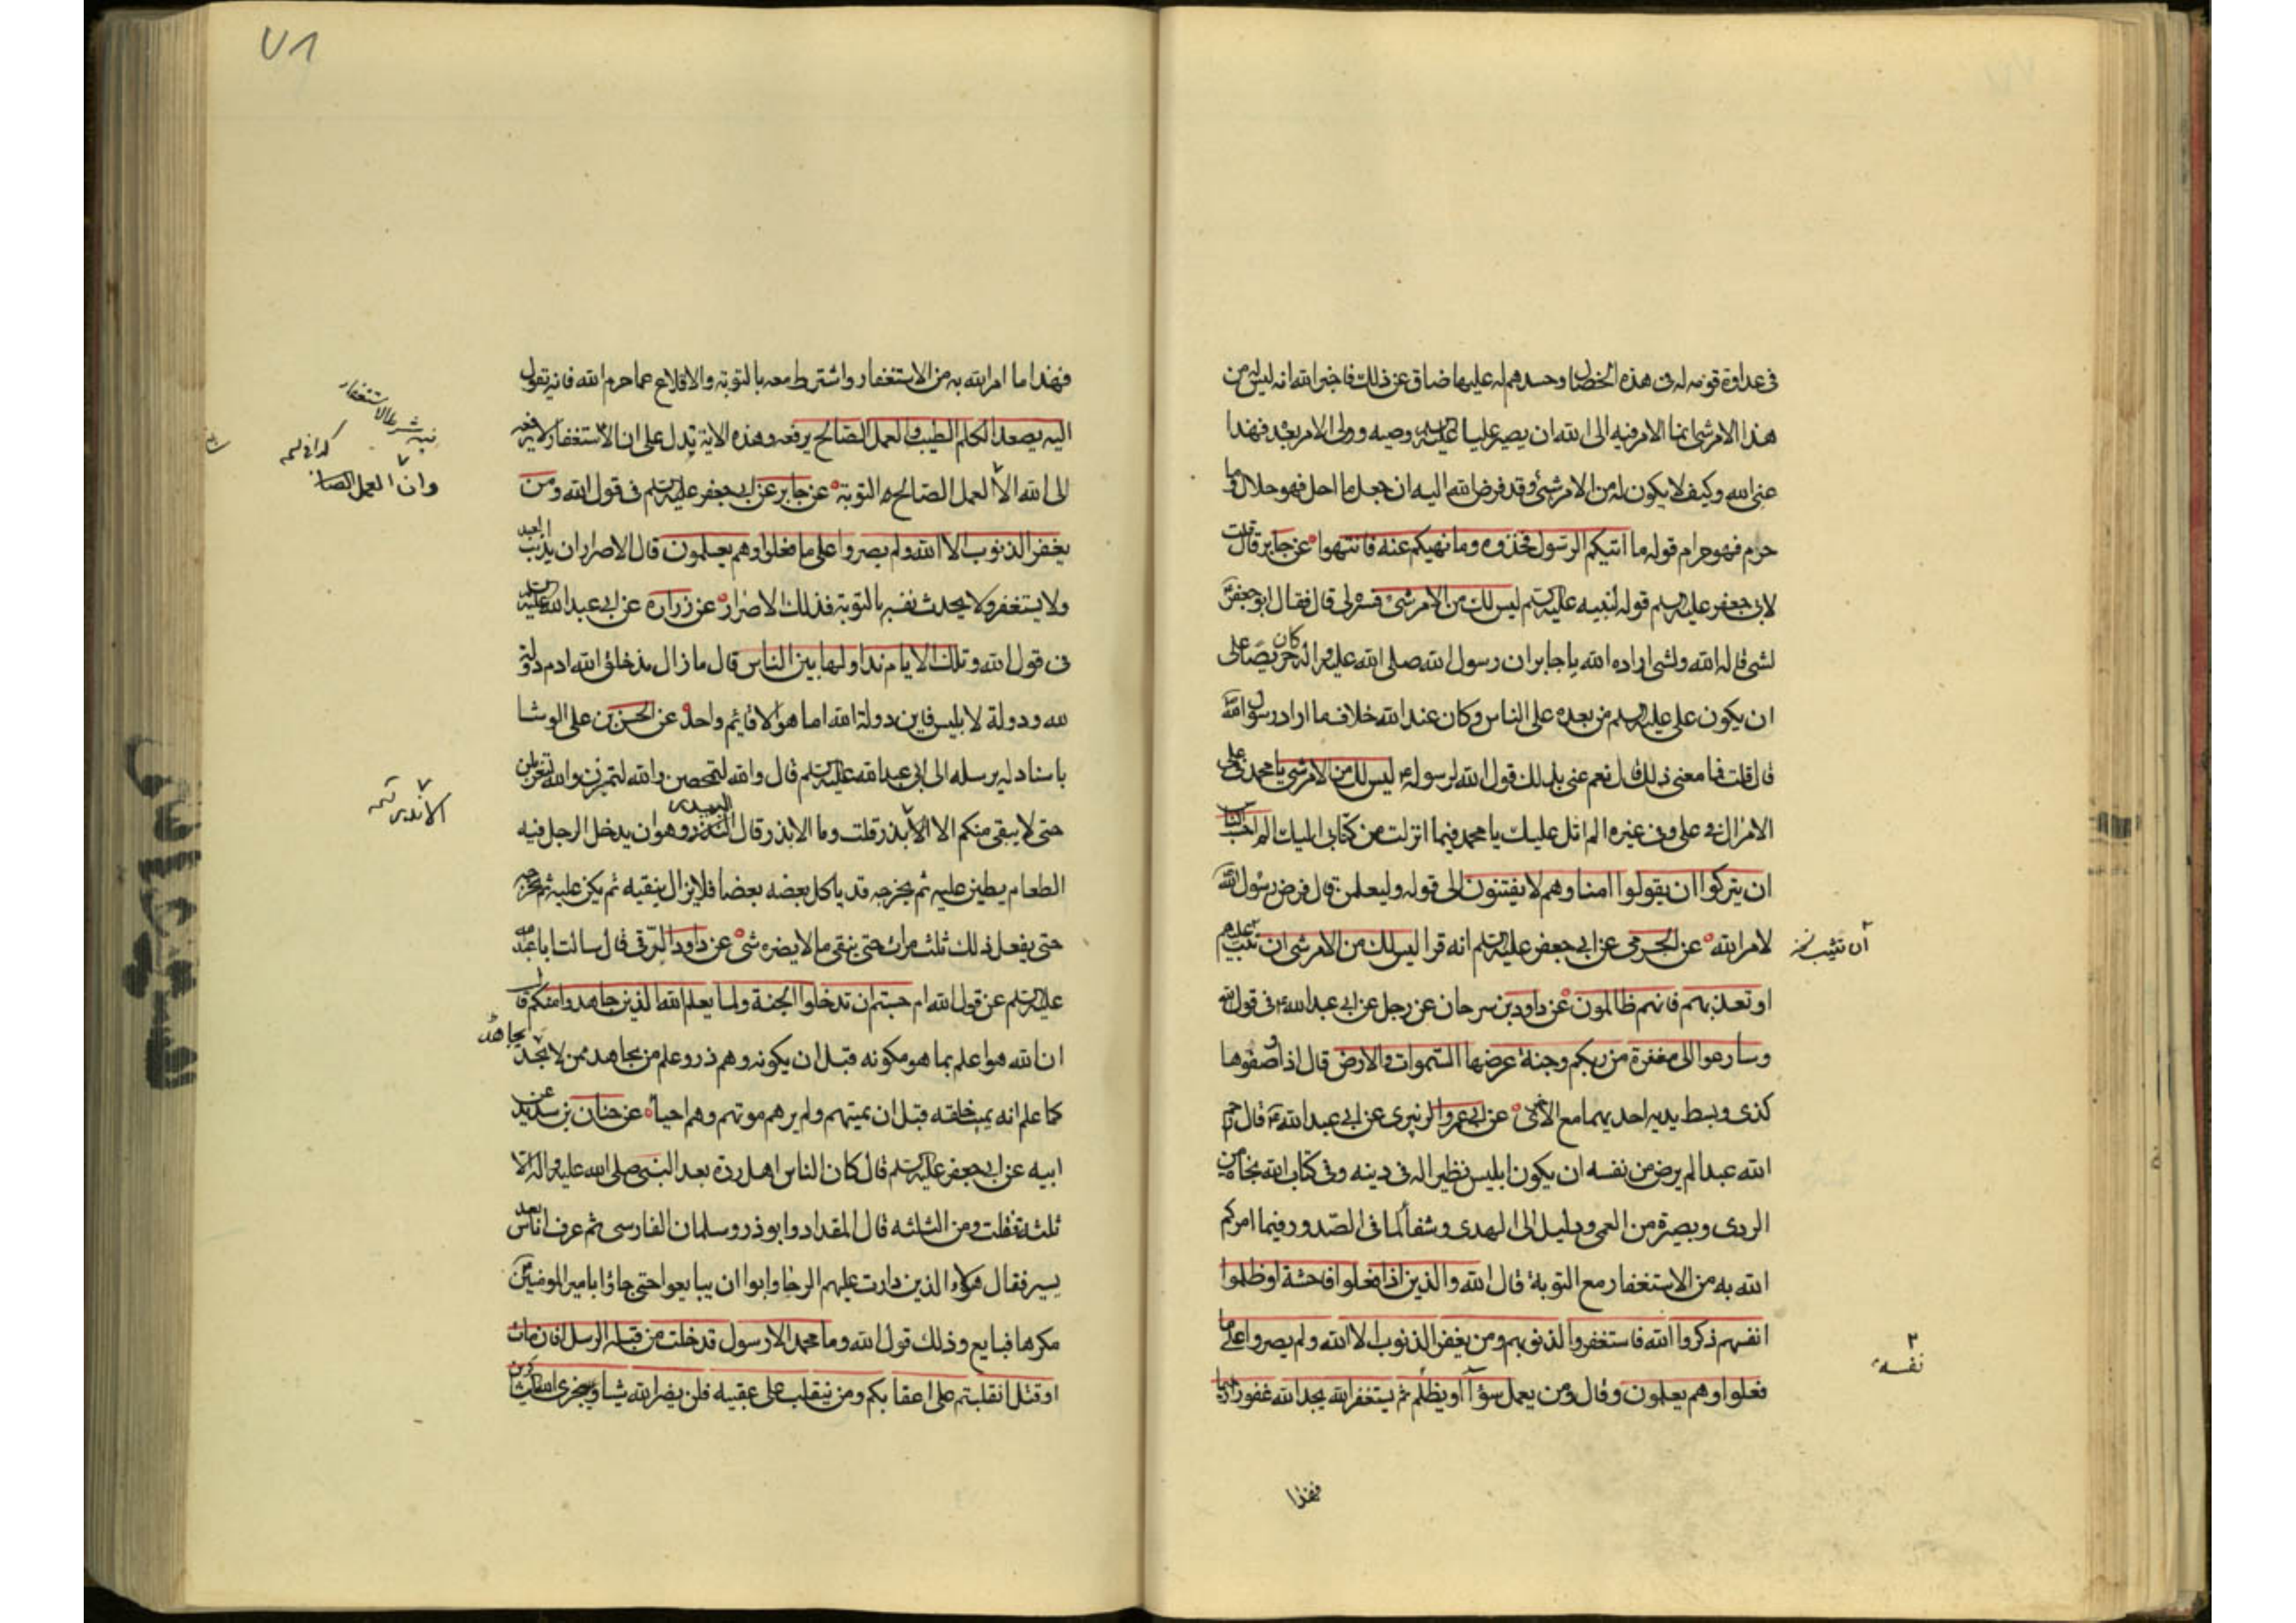 فى عداوة قومه له فى هذه الخصال وحسدهم له عليها ضاق عن ذلك فاخبر الله انه ليس له من
هذا الامر شئ انما الامر فيه الى الله ان يصير عليا عليه السلم وصيه وولى الامر بعده فهذا
عنى الله وكيف لا يكون له من الامر شئ وقد فرض الله اليه ان جعل ما احل فهو حلال وما
حرم فهو حرام قوله ما اتيكم الرسول فخذوه وما نهيكم عنه فانتهوا عن جابر قال قلت
لابى جعفر عليه السلم قوله لنبيه عليه السلم ليس لك من الامر شئ فسره لى قال فقال ابو جعفر ع
لشئ قاله الله ولشئ اراده الله يا جابر ان رسول الله صلى الله عليه واله كان حريصا على
ان يكون على عليه السلم من بعده على الناس وكان عند الله خلاف ما اراد رسول الله
قال قلت فما معنى ذلك قال نعم عنى بذلك قول الله لرسوله ع ليس لك من الامر شئ يا محمد فى على
الامر الى فى على وفى غيره الم اتل عليك يا محمد فيما انزلت من كتابى اليك الم احسب الناس
ان يتركوا ان يقولوا امنا وهم لا يفتنون الى قوله وليعلمن قال فرض رسول الله
لامر الله عن الجرمى عن ابى جعفر عليه السلم انه قرا ليس لك من الامر شئ ان تتب عليهم
ان تتب نخ
او تعذبهم فانهم ظالمون عن داود بن سرحان عن رجل عن ابى عبد الله ع فى قول الله
وسارعوا الى مغفرة من ربكم وجنة عرضها السموات والارض قال اذا وصفوها
كذى وبسط يديه احديهما مع الاخرى عن ابى عمرو الزبيرى عن ابى عبد الله ع قال رحم
الله عبدا لم يرض من نفسه ان يكون ابليس نظيرا له فى دينه وفى كتاب الله نجاة من
الردى وبصيرة من العمى ودليل الى الهدى وشفأ لما فى الصدور فيما امركم
الله به من الاستغفار مع التوبة قال الله والذين اذا فعلوا فاحشة او ظلموا
انفسهم ذكروا الله فاستغفروا لذنوبهم ومن يغفر الذنوب الا الله ولم يصروا على ما
فعلوا وهم يعلمون وقال ومن يعمل سؤا او يظلم ثم يستغفر الله يجد الله غفورا رحيما
نفسه
فهذا
٧١
فهذا ما امر الله به من الاستغفار واشترط معه بالتوبة والاقلاع عما حرم الله فانه يقول
اليه يصعد الكلم الطيب والعمل الصالح يرفعه وهذه الاية تدل على ان الاستغفار لا يرفعه
الى الله الا العمل الصالح والتوبة عن جابر عن ابى جعفر عليه السلم فى قول الله ومن
وان العمل الصا
يغفر الذنوب الا الله ولم يصروا على ما فعلوا وهم يعلمون قال الاصرار ان يذنب العبد
ولا يستغفر ولا يحدث نفسه بالتوبة فذلك الاصرار عن زراره عن ابى عبد الله عليه السلم
فى قول الله وتلك الايام نداولها بين الناس قال ما زال مذ خلق الله ادم دولة
لله ودولة لابليس فاين دولة الله اما هو الا قائم واحد عن الحسن بن على الوشا
باسناد له يرسله الى ابى عبد الله عليه السلم قال والله لتمحصن والله لتميزن والله لتغربلن
حتى لا يبقى منكم الا الابذر قلت وما الابذر قال البيدر وهو ان يدخل الرجل فيه
الاندر
الطعام يطين عليه ثم يخرجه قد ياكل بعضه بعضا فلا يزال ينقيه ثم يكن عليه ثم يخرجه
حتى يفعل ذلك ثلث مرات حتى يبقى ما لا يضره شئ عن داود الرقى قال سالت ابا عبد الله
عليه السلم عن قول الله ام حسبتم ان تدخلوا الجنة ولما يعلم الله الذين جاهدوا منكم قال
ان الله هو اعلم بما هو مكونه قبل ان يكونه وهم ذر وعلم من يجاهد ممن لا يجاهد
كما علم انه يميت خلقه قبل ان يميتهم ولم يرهم موتهم وهم احيأ عن حنان بن سدير عن
ابيه عن ابى جعفر عليه السلم قال كان الناس اهل ردة بعد النبى صلى الله عليه واله الا
ثلثة فقلت ومن الثلثه قال المقداد وابو ذر وسلمان الفارسى ثم عرف اناس بعد
يسير فقال هؤلاء الذين دارت عليهم الرحا وابوا ان يبايعوا حتى جاؤا بامير المومنين ع
مكرها فبايع وذلك قول الله وما محمد الا رسول قد خلت من قبله الرسل افان مات
او قتل انقلبتم على اعقابكم ومن ينقلب على عقبيه فلن يضر الله شيئا وسيجزى الله الشاكرين